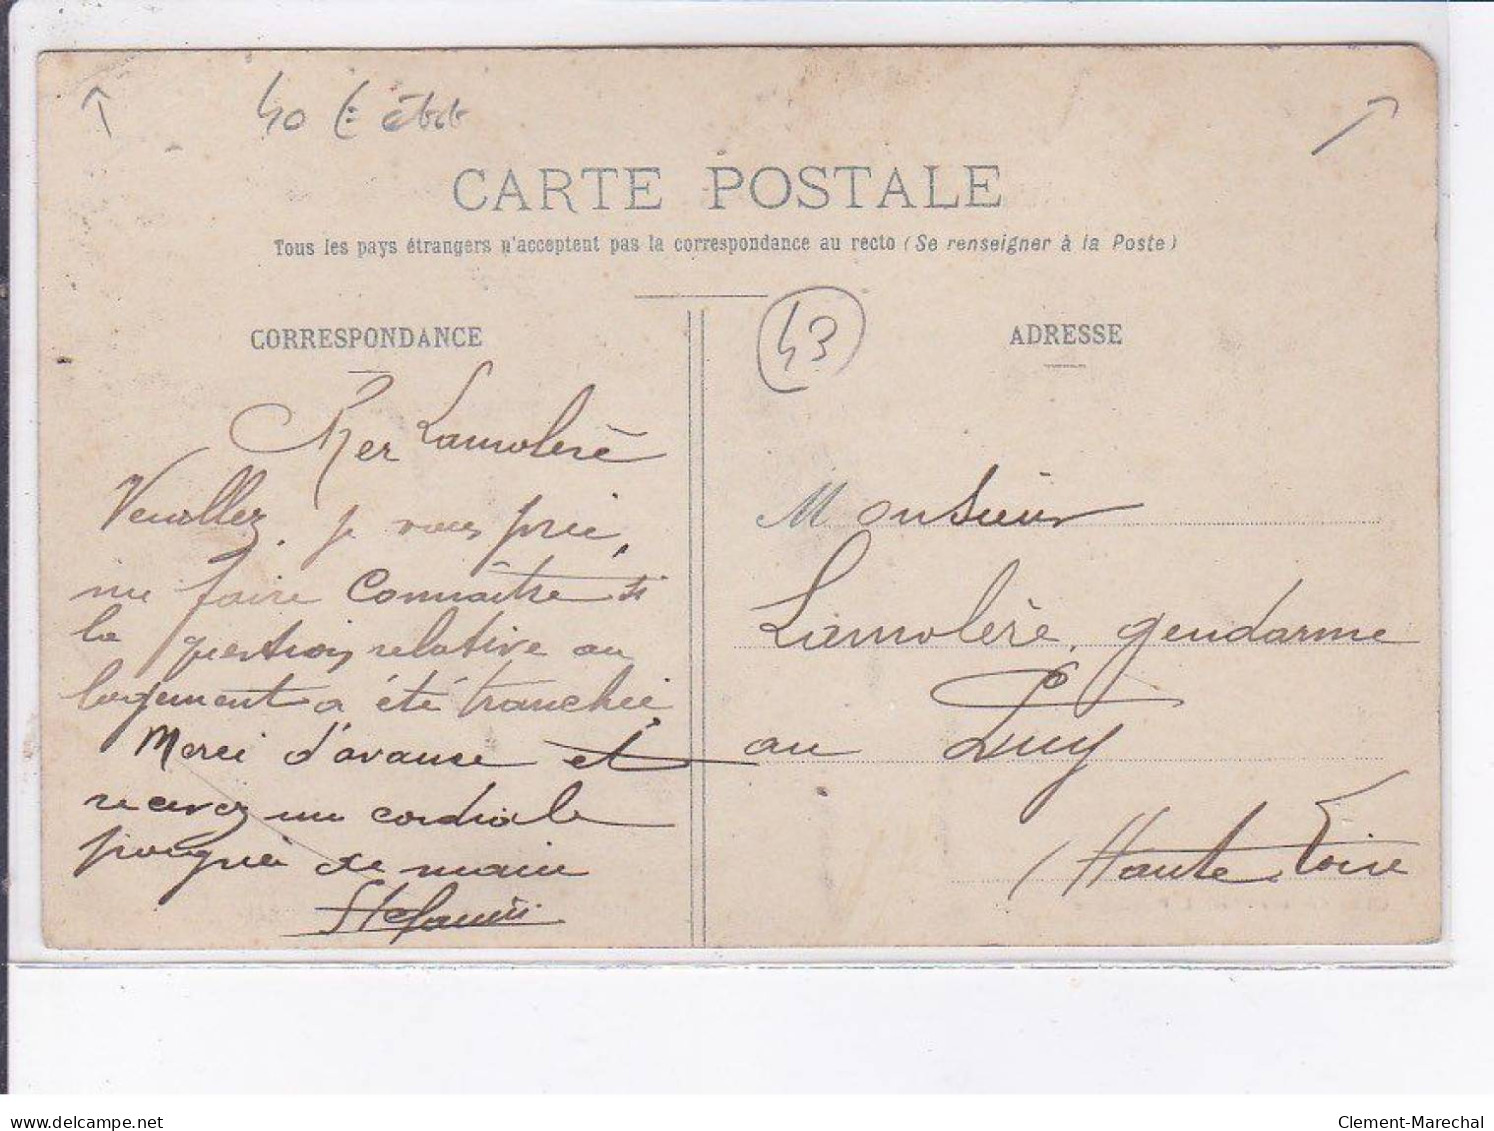 40 € ét
CARTE POSTALE
Tous les pays étrangers n'acceptent pas la correspondance au recto (Se renseigner à la Poste)
43
CORRESPONDANCE
Cher Lamolère
Veuillez, je vous prie,
me faire connaître si
la question relative au
logement a été tranchée
Merci d'avance et
recevez un cordiale
poignée de main
Stefanini
ADRESSE
Monsieur
Lamolère, gendarme
au Puy
(Haute Loire
delcampe.net
Clement-Marechal